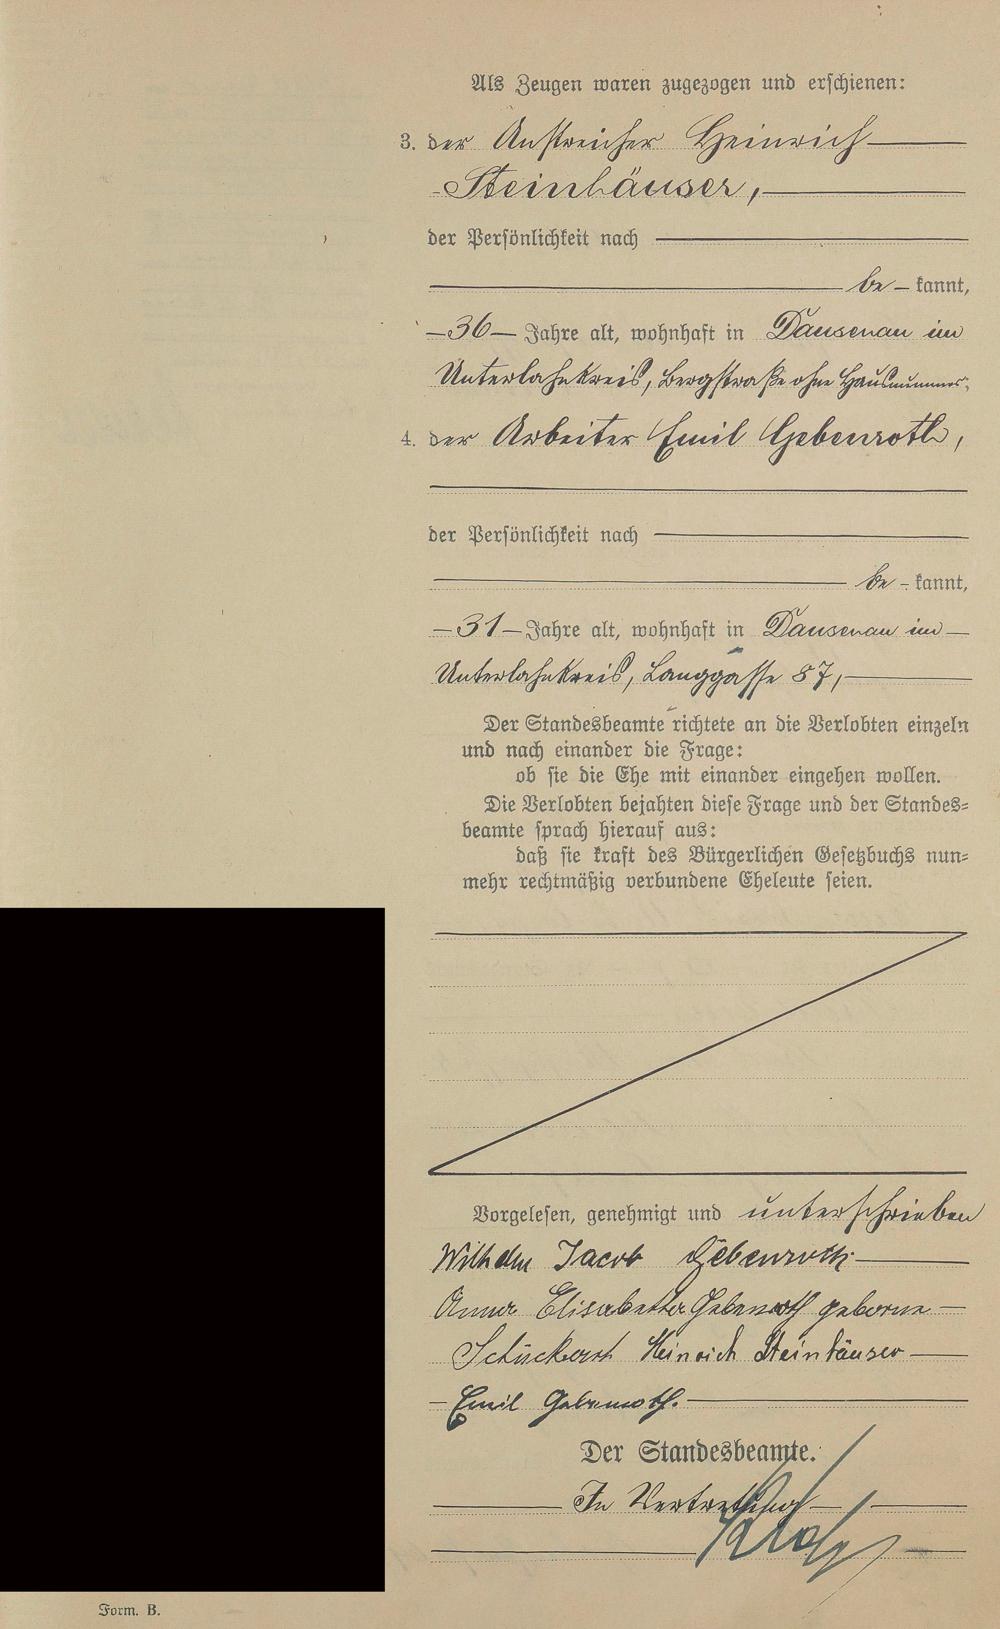 Als Zeugen waren zugezogen und erschienen:
3. der Anstreicher Heinrich
Steinhäuser,
der Persönlichkeit nach
be- kannt,
-36- Jahre alt, wohnhaft in Dausenau im
Unterlahnkreis, Bergstraße ohne Hausnummer;
4. der Arbeiter Emil Gebenroth,
der Persönlichkeit nach
be- kannt,
-31- Jahre alt, wohnhaft in Dausenau im
Unterlahnkreis, Langgasse 87,
Der Standesbeamte richtete an die Verlobten einzeln
und nach einander die Frage:
ob sie die Ehe mit einander eingehen wollen.
Die Verlobten bejahten diese Frage und der Standes-
beamte sprach hierauf aus:
daß sie kraft des Bürgerlichen Gesetzbuchs nun-
mehr rechtmäßig verbundene Eheleute seien.
Vorgelesen, genehmigt und unterschrieben
Wilhelm Jacob Gebenroth
Anna Elisabetta Gebenroth geborne
Heinrich Steinhäuser
Emil Gebenroth.
Der Standesbeamte.
In Vertretung
Form. B.